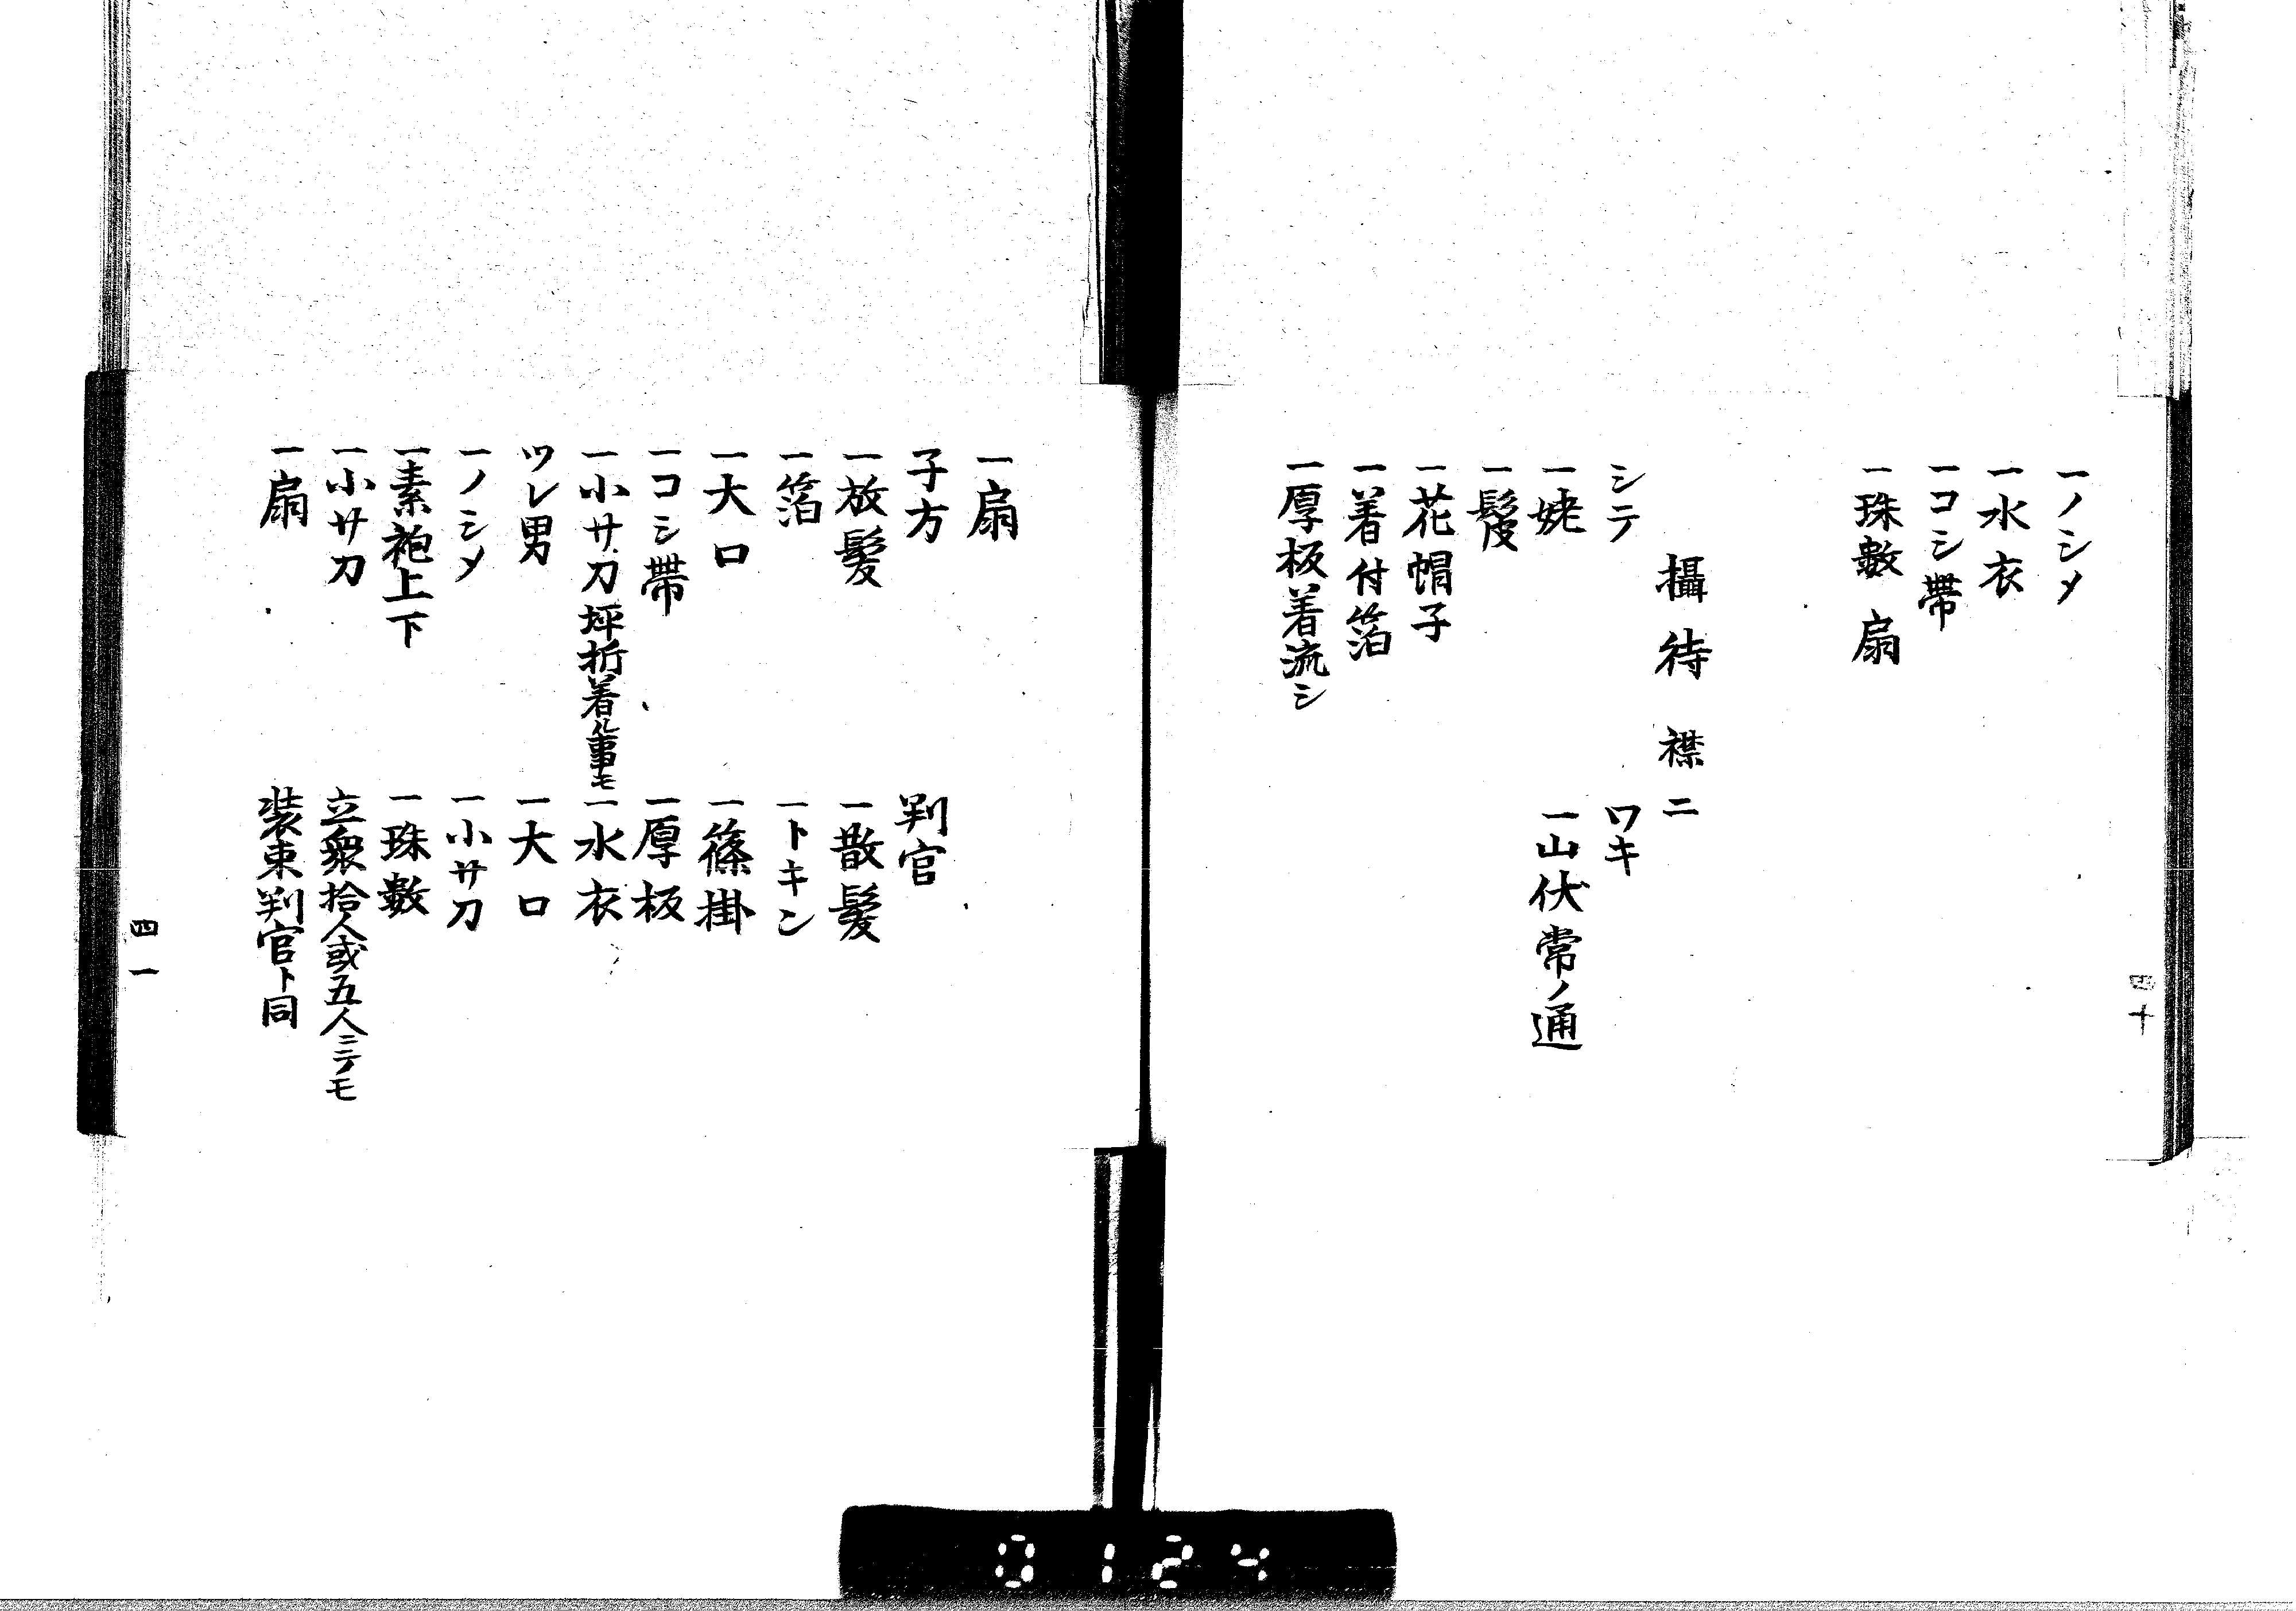 一ノシメ
一水衣
一コシ帶
一珠數 扇
攝待 襟二
シテ
一姥
一鬘
一花帽子
一着付箔
一厚板着流シ
ワキ
一山伏常ノ通
四十
一扇
子方
一放髪
一箔
一大口
一コシ帶
一小サ刀坪折着ル事モ
ツレ男
一ノシメ
一素袍上下
一小サ刀
一扇
判官
一散髪
一トキン
一篠掛
一厚板
一水衣
一大口
一小サ刀
一珠數
立衆拾人或五人ニテモ
装束判官ト同
四一
0124